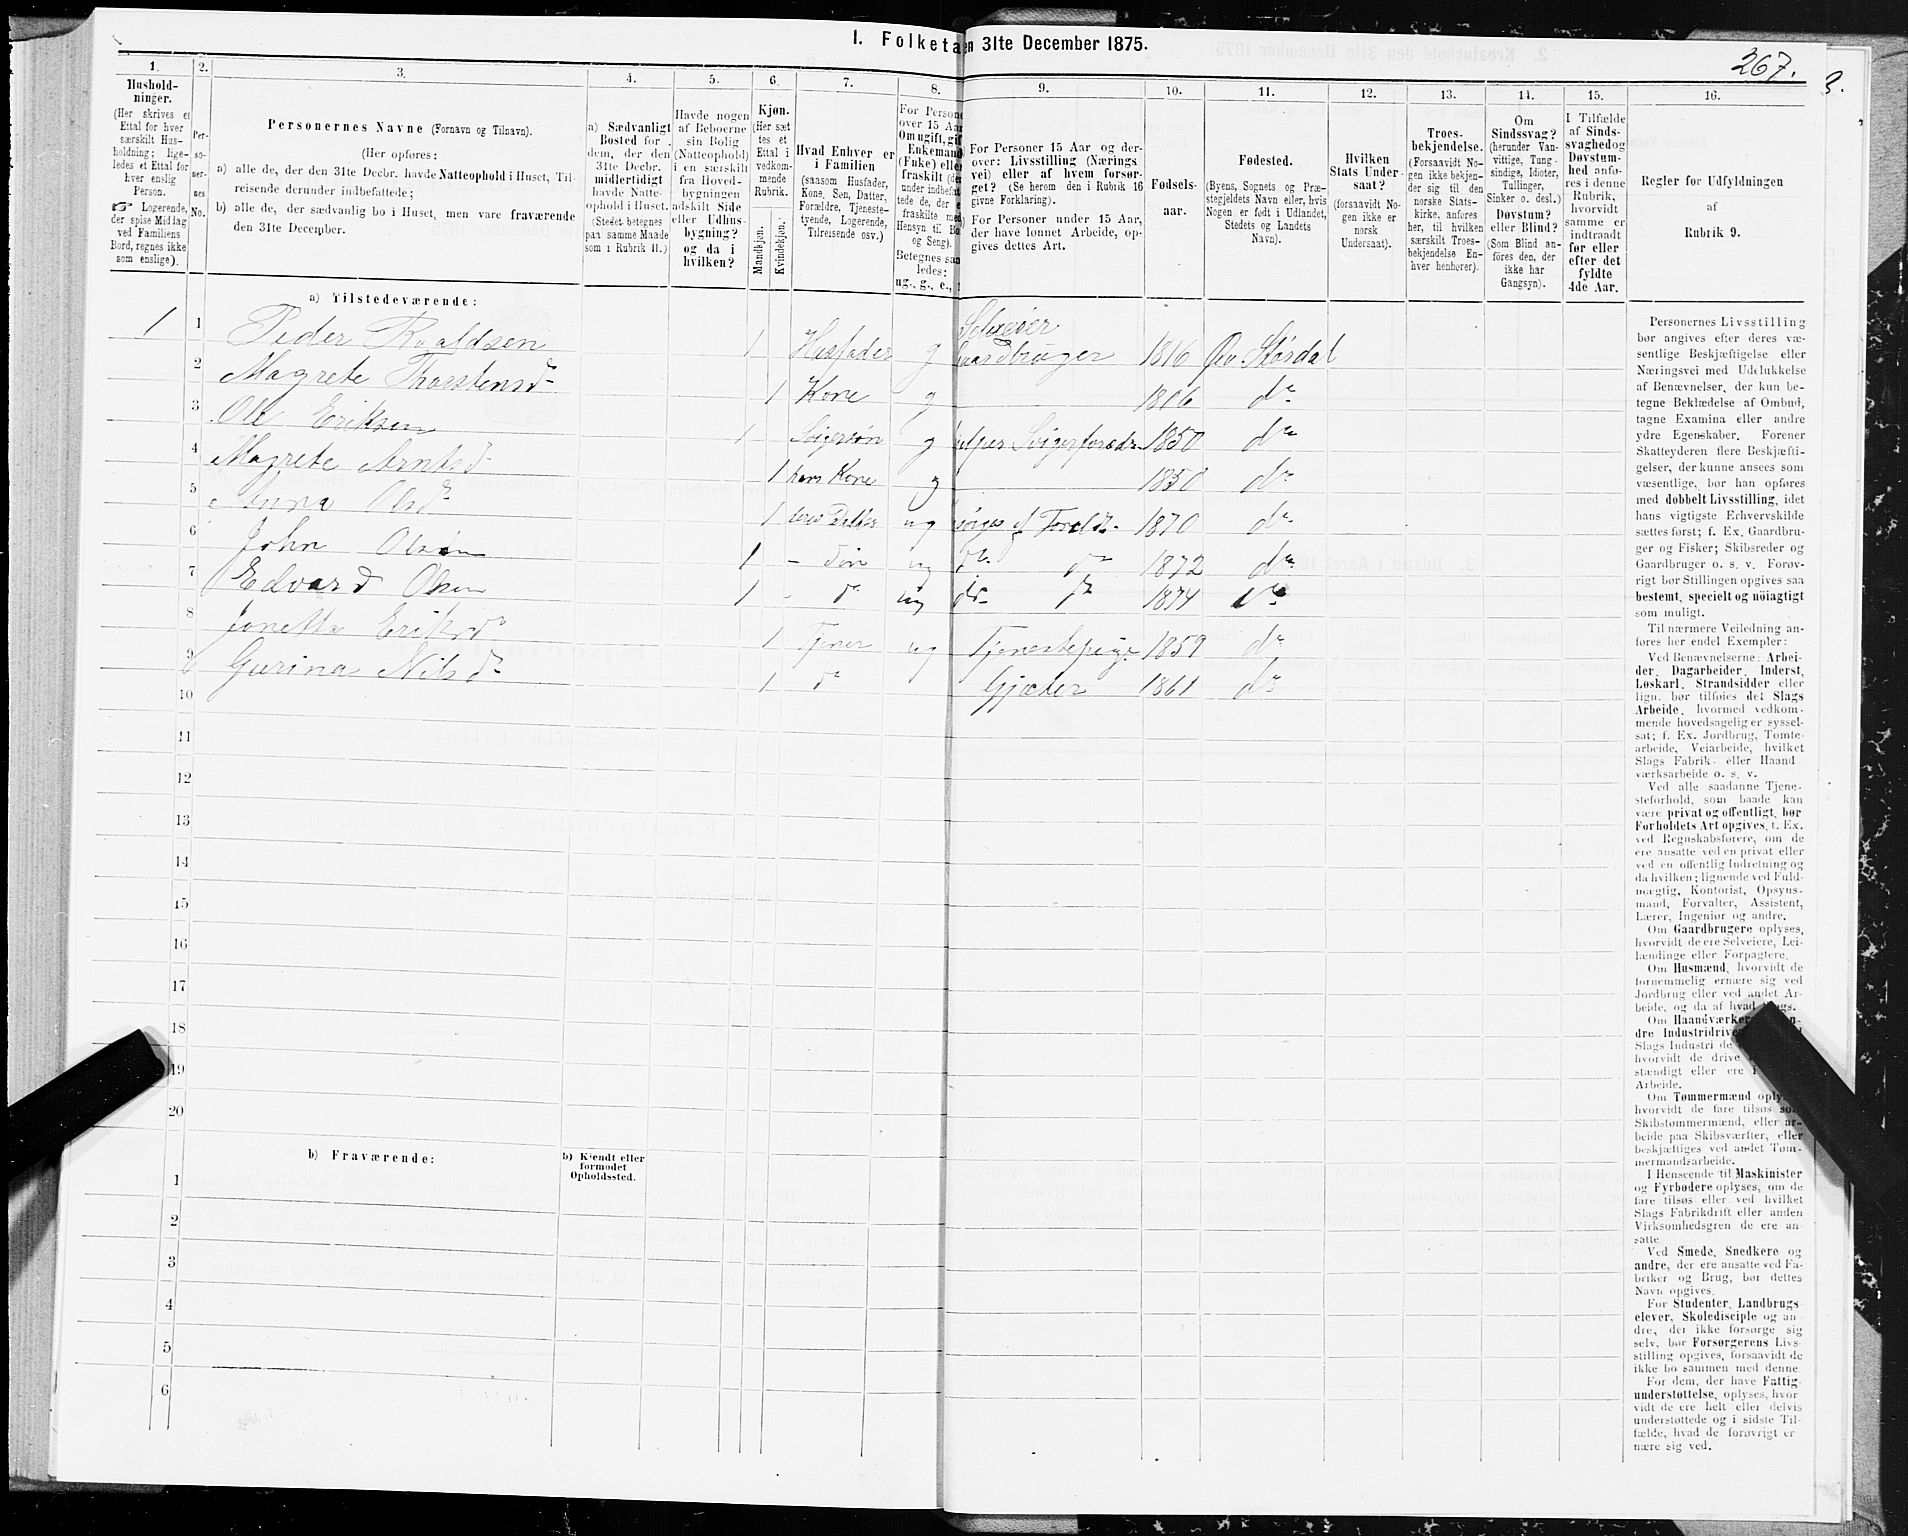 I. Folketa en 31te December 1875.
267.
3.
1. 2. 3. 4. 5. 6. 7. 8. 9. 10. 11. 12. 13. 14. 15. 16.
Hushold-
ninger.
(Her skrives et
Ettal for hver
særskilt Hus-
holdning; lige-
ledes et Ettal for
hver enslig
Person.
☞ Logerende,
der spise Middag
ved Familiens
Bord, regnes ikke
som enslige).
Per-
so-
ner-
nes
No.
Personernes Navne (Fornavn og Tilnavn).
(Her opføres:
a) alle de, der den 31te Decbr. havde Natteophold i Huset, Til-
reisende derunder indbefattede;
b) alle de, der sædvanlig bo i Huset, men vare fraværende
den 31te December.
a) Sædvanligt
Bosted for
dem, der den
31te Decbr.
midlertidigt
havde Natte-
ophold i Huset.
(Stedet betegnes
paa samme Maade
som i Rubrik 11.)
Havde nogen
af Beboerne
sin Bolig
(Natteophold)
i en særskilt
fra Hoved-
bygningen
adskilt Side
eller Udhus-
bygning?
og da i
hvilken?
Kjøn.
(Her sæt
tes et
Ettal i
vedkom-
mende
Rubrik.
Mandkjøn.
Kvindekjøn.
Hvad Enhver er
i Familien
(saasom Husfader,
Kone, Søn, Datter,
Forældre, Tjeneste-
tyende, Logerende,
Tilreisende osv.)
For Persone
over 15 Aar
Om ugift, gif
Enkemand
(Enke) elle
fraskilt (d
under indbefat
tede de, der e
fraskilte med
Hensyn til Bo
og Seng).
Betegnes saa
ledes:
ug., g., e.,
For Personer 15 Aar og der-
over: Livsstilling (Nærings
vei) eller af hvem forsør-
get? (Se herom den i Rubrik 16
givne Forklaring).
For Personer under 15 Aar,
der have lønnet Arbeide, op-
gives dettes Art.
Fødsels-
aar.
Fødested.
(Byens, Sognets og Præ-
stegjeldets Navn eller, hvis
Nogen er født i Udlandet,
Stedets og Landets
Navn).
Hvilken
Stats Under-
saat?
(forsaavidt No-
gen ikke er
norsk
Undersaat).
Troes-
bekjendelse.
(Forsaavidt No-
gen ikke bekjen-
der sig til den
norske Stats-
kirke, anføres
her, til hvilken
særskilt Troes-
bekjendelse En-
hver henhører).
Om
Sindssvag?
(herunder Van-
vittige, Tung-
sindige, Idioter,
Tullinger,
Sinker o. desl.)
Døvstum?
eller Blind?
(Som Blind an-
føres den, der
ikke har
Gangsyn).
I Tilfælde
af Sinds-
svaghed og
Døvstum-
hed anfø-
res i denne
Rubrik,
hvorvidt
samme er
indtraadt
før eller
efter det
fyldte
4de Aar.
Regler for Udfyldningen
af
Rubrik 9.
a) Tilstedeværende:
1 1 Peder Roaldsen 1 Husfader g Selveier Gaardbruger 1816 Øv Størdal
2 Magrete Thorstensd 1 Kone g 1816 do
3 Ole Eriksen 1 Svigersøn g Svigerforældr 1850 do
4 Magrete Arntsd 1 hans Kone g 1850 do
5 Anna Olsd 1 deres Datter ug af Foreld 1870 do
6 John Olsøn 1 - Søn ug do do 1872 do
7 Edvard Olsen 1 - do ug do do 1874 do
8 Jonetta Eriksd 1 Tjener ug Tjenestepige 1859 do
9 Gurina Nilsd 1 do Gjæter 1861 do
10
11
12
13
14
15
16
17
18
19
20
b) Fraværende:
b) Kjendt eller
formodet
Opholdssted.
1
2
3
4
5
6
Personernes Livsstilling
bør angives efter deres væ-
sentlige Beskjæftigelse eller
Næringsvei med Udelukkelse
af Benævnelser, der kun be-
tegne Beklædelse af Ombud,
tagne Examina eller andre
ydre Egenskaber. Forener
Skatteyderen flere Beskjæfti-
gelser, der kunne ansees som
væsentlige, bør han opføres
med dobbelt Livsstilling, idet
hans vigtigste Erhvervskilde
sættes først; f. Ex. Gaardbru-
ger og Fisker; Skibsreder og
Gaardbruger o. s. v. Forøv-
rigt bør Stillingen opgives saa
bestemt, specielt og nöiagtigt
som muligt.
Til nærmere Veiledning an-
føres her endel Exempler:
Ved Benævnelserne: Arbei-
der, Dagarbeider, Inderst,
Løskarl, Strandsidder eller
lign. bør tilføies det Slags
Arbeide, hvormed vedkom-
mende hovedsagelig er syssel-
sat; f. Ex. Jordbrug, Tomte-
arbeide, Veiarbeide, hvilket
Slags Fabrik- eller Haand-
værksarbeide o. s. v.
Ved alle saadanne Tjene-
steforhold, som baade kan
være privat og offentligt, bør
Forholdets Art opgives, f. Ex.
ved Regnskabsførere, om de
ere ansatte ved en privat eller
ved en offentlig Indretning og
da hvilken; lignende ved Fuld-
mægtig, Kontorist, Opsyns-
mand, Forvalter, Assistent,
Lærer, Ingeniør og andre.
Om Gaardbrugere oplyses,
hvorvidt de ere Selveiere, Lei-
lændinge eller Forpagtere.
Om Husmænd, hvorvidt de
fornemmelig ernære sig ved
Jordbrug eller ved andet Ar-
beide, og da af hvad Slags.
Om Haandværker ... n-
dre Industridrive
Slags Industri de
hvorvidt de drive
stændigt eller ere
Arbeide.
Om Tømmermænd oply
hvorvidt de fare tilsøs som
Skibstømmermænd, eller ar-
beide paa Skibsværfter, eller
beskjæftiges ved andet Tøm-
mermandsarbeide.
I Henseende til Maskinister
og Fyrbødere oplyses, om de
fare tilsøs eller ved hvilket
Slags Fabrikdrift eller anden
Virksomhedsgren de ere an-
satte
Ved Smede, Snedkere og
andre, der ere ansatte ved Fa-
briker og Brug, bør dettes
Navn opgives.
For Studenter, Landbrugs-
elever, Skoledisciple og an-
dre, der ikke forsørge sig
selv, bør Forsørgerens Livs-
stilling opgives, forsaavidt de
ikke bo sammen med denne.
For dem, der have Fattig-
understøttelse, oplyses, hvor-
vidt de ere helt eller delvis
understøttede og i sidste Til-
fælde, hvad de forøvrigt er
nære sig ved.